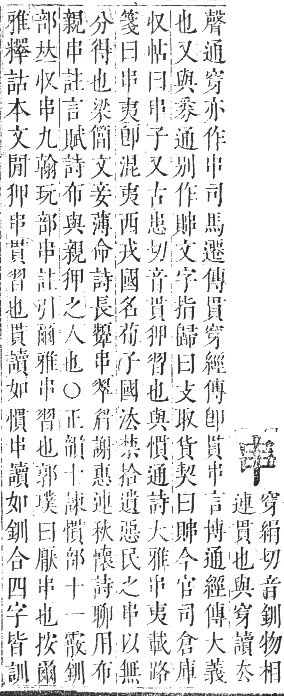 串
穿絹切音釧物相
連貫也與穿讀厺
聲通穿亦作串司馬遷傳貫穿經傳卽貫串言博通經傳大義
也又與通別作賗文字指歸曰支取貨契曰賗今官司倉庫
収帖曰串子又古患切音貫狎習也與慣通詩大雅串夷載路
箋曰串夷卽混夷西戎國名荀子國法禁拾遺惡民之串以無
分得也梁簡文妾薄命詩長顰串翠眉謝惠連秋懷詩聊用布
親串註言賦詩布與親狎之人也○正韻十諫慣部十一霰釧
部𠀤収串九翰玩部串註引爾雅串習也郭璞曰厭串也按爾
雅釋詁本文閒狎串貫習也貫讀如慣串讀如釧合四字皆訓